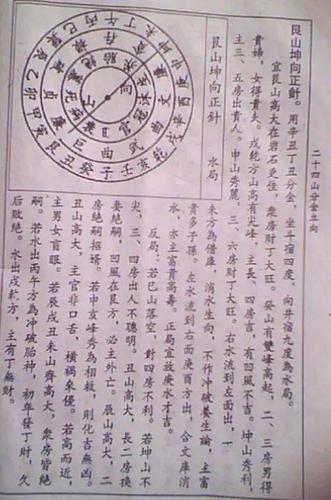 二十四山分金立向
艮山坤向正針。用辛丑丁丑分金,坐斗宿四度,向井宿九度為水局。
宜艮山高大在岩石更佳,衆房財丁大旺。癸山有雙峰高起,二、三房男得
貴婦,女得貴夫。戌乾方山高有尖峰,主長、四房吉,有凹風不吉。坤山秀利,
主三、五房出貴人。申山秀麗,三、六房財丁大旺。右水流到左面出,一
艮山坤向正針 水局
未方為借庫,消水生向,不作冲破養生論,主富
貴多子孫。左水流到右面庚酉方出,合文庫消
水,亦主富貴高壽。正局宜放庚水才吉。
反局:若巳山落空,對四房不利。若坤山不
尖,三、四房出人不聰明。丑山高大,長二房換
妻絕嗣,凹風在艮方,必主外亡。辰山高大,二
房絕嗣招婿。若申亥峰秀為相救,則化吉無凶。
丑山高大,主官非口舌,橫禍來侵。若高而近,
主男女盲眼。若辰戌丑未山齊高大,衆房皆絕
嗣。若水出丙午方為冲破胎神,初年發丁財,久
后敗絕。水出戌乾方,主有丁無財。